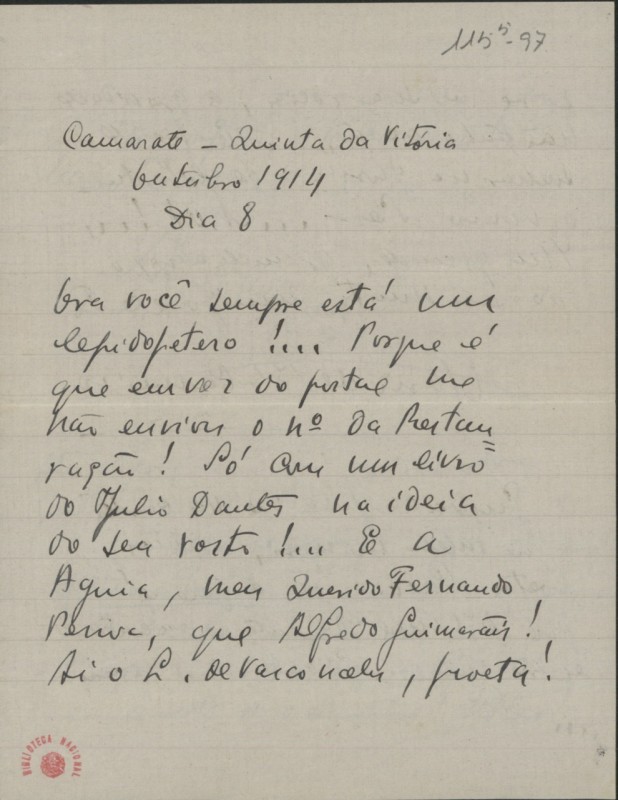 115⁵-97
Camarate - Quinta da Vitória
Outubro 1914
Dia 8
Ora você sempre está um
lepidopetero!... Porque é
que em vez do postal me
não enviou o nº da Restau=
ração! Só com um livro
do Julio Dantas na ideia
do seu rosto!... E a
Aguia, meu Querido Fernando
Pessoa, que Alfredo Guimarães!
Ai o L. de Vasconcelos, poeta!
BIBLIOTECA NACIONAL